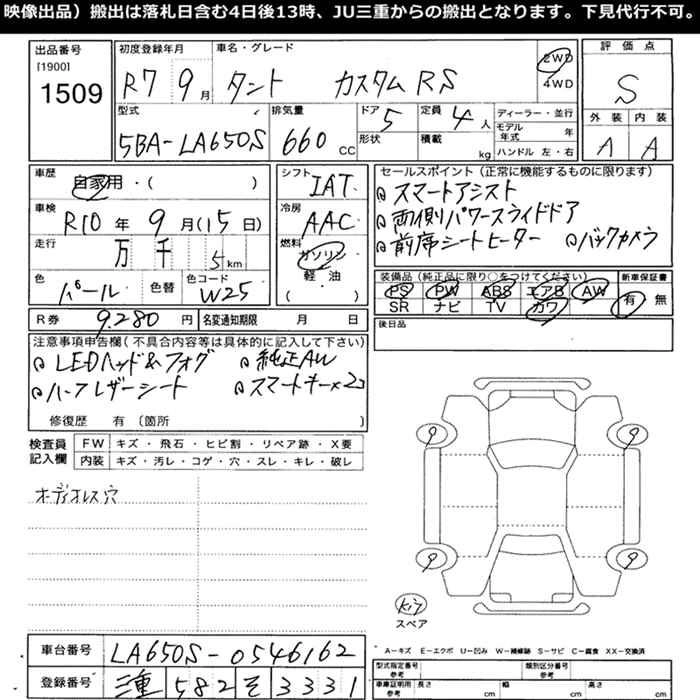 映像出品）搬出は落札日含む4日後13時、JU三重からの搬出となります。下見代行不可。
出品番号
[1900]
1509
初度登録年月
R7 9月
車名・グレード
タント カスタムRS
2WD
4WD
評価点
S
外装 内装
A A
型式
5BA-LA650S
排気量
660 CC
ドア 5
形状
定員 4人
積載 kg
ディーラー・並行
モデル年式 年
ハンドル 左・右
車歴
自家用・( )
車検
R10年 9月(15日)
走行
万 千 5km
色
パール
色替
色コード
W25
シフト
IAT
冷房
AAC
燃料
ガソリン
軽油
( )
セールスポイント（正常に機能するものに限ります）
スマートアシスト
両側パワースライドドア
前席シートヒーター バックカメラ
装備品（純正品に限り○をつけてください）
PS PW ABS エアB AW
SR ナビ TV カワ
新車保証書
有 無
後日品
R券 9,280円
名変通知期限 月 日
注意事項申告欄（不具合内容等は具体的に記入して下さい）
LEDヘッド&フォグ 純正AW
ハーフレザーシート スマートキー×2コ
修復歴 有〔箇所 〕
検査員記入欄
FW キズ・飛石・ヒビ割・リペア跡・X要
内装 キズ・汚レ・コゲ・穴・スレ・キレ・破レ
オーディオレス穴
9 9
9 9
キリ
スペア
車台番号 LA650S-0546162
登録番号 三重 582 そ 3331
A－キズ E－エクボ U－凹み W－補修跡 S－サビ C－腐食 XX－交換済
型式指定番号
参考
類別区分番号
参考
車庫証明用
参考
長さ cm 幅 cm 高さ cm